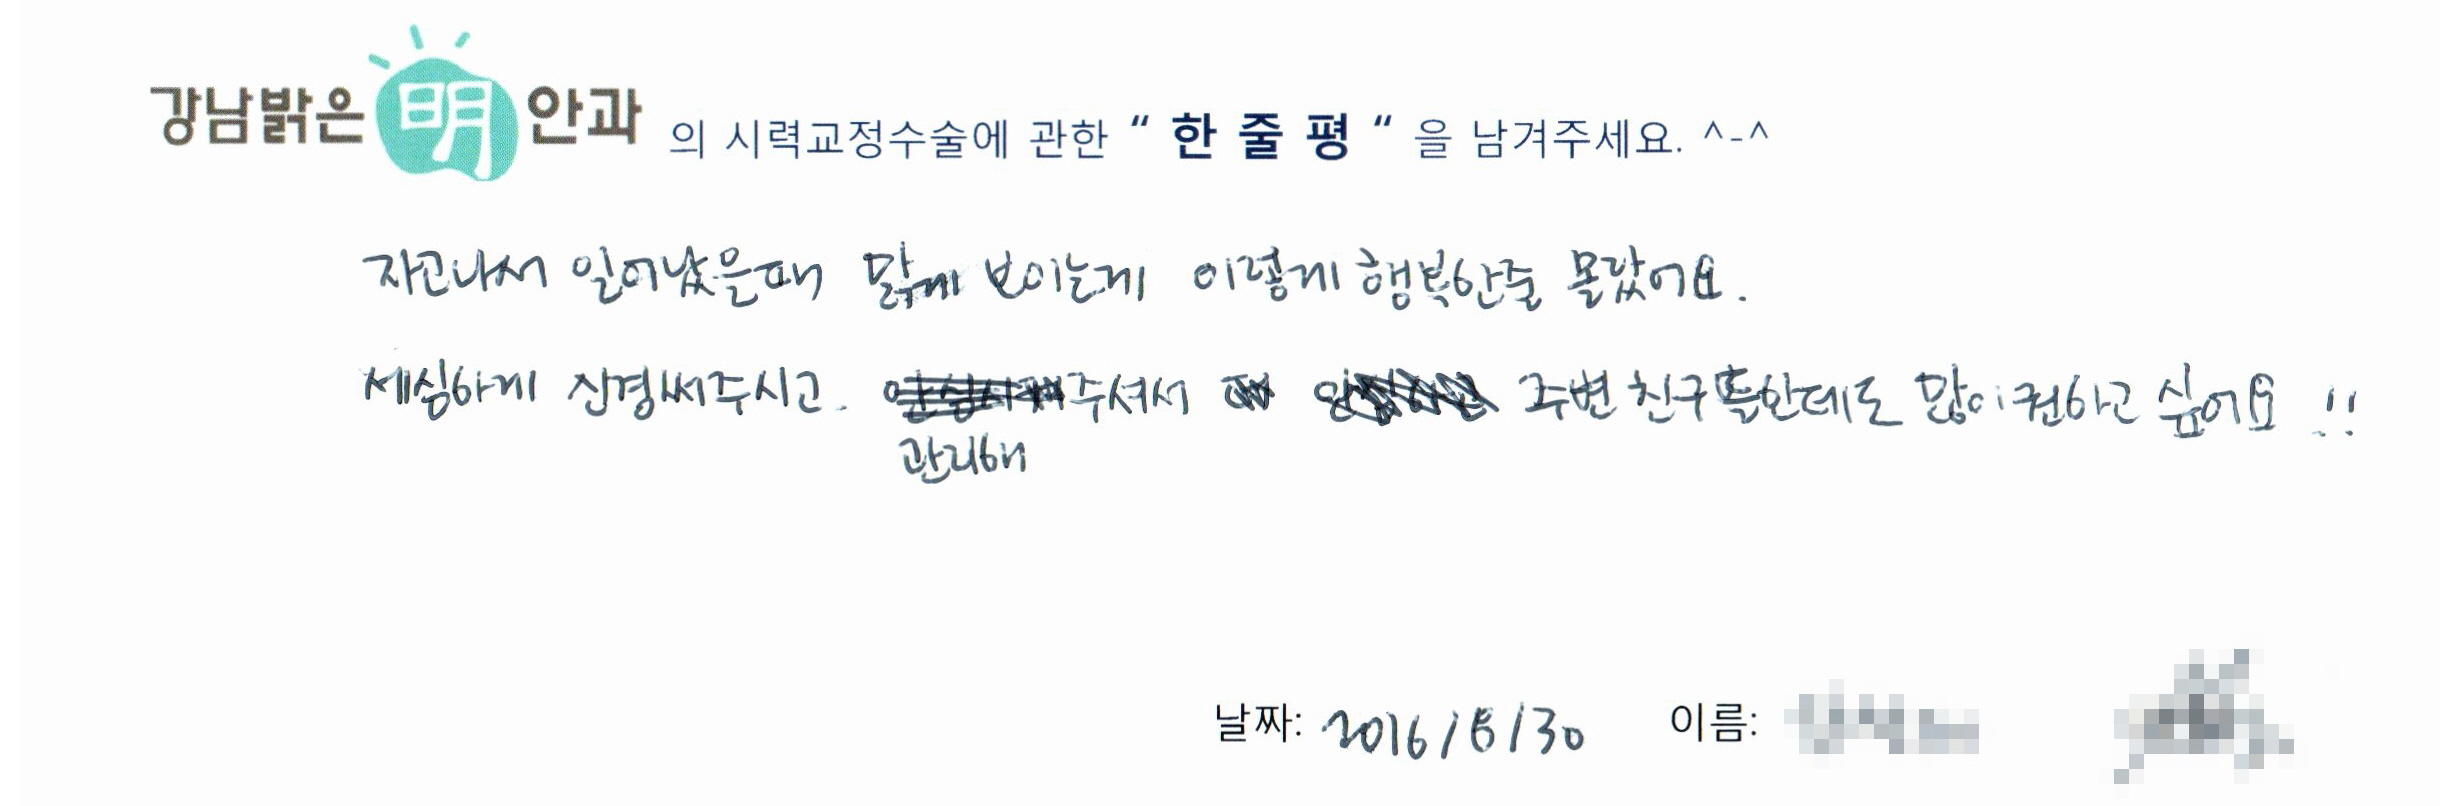 강남밝은 明 안과 의 시력교정수술에 관한 “ 한 줄 평 “ 을 남겨주세요. ^-^
자고나서 일어났을때 맑게 보이는게 이렇게 행복한줄 몰랐어요.
세심하게 신경써주시고. 주셔서 주변 친구들한테도 많이 권하고 싶어요 !!
관리해
날짜: 2016 / / 30 이름: